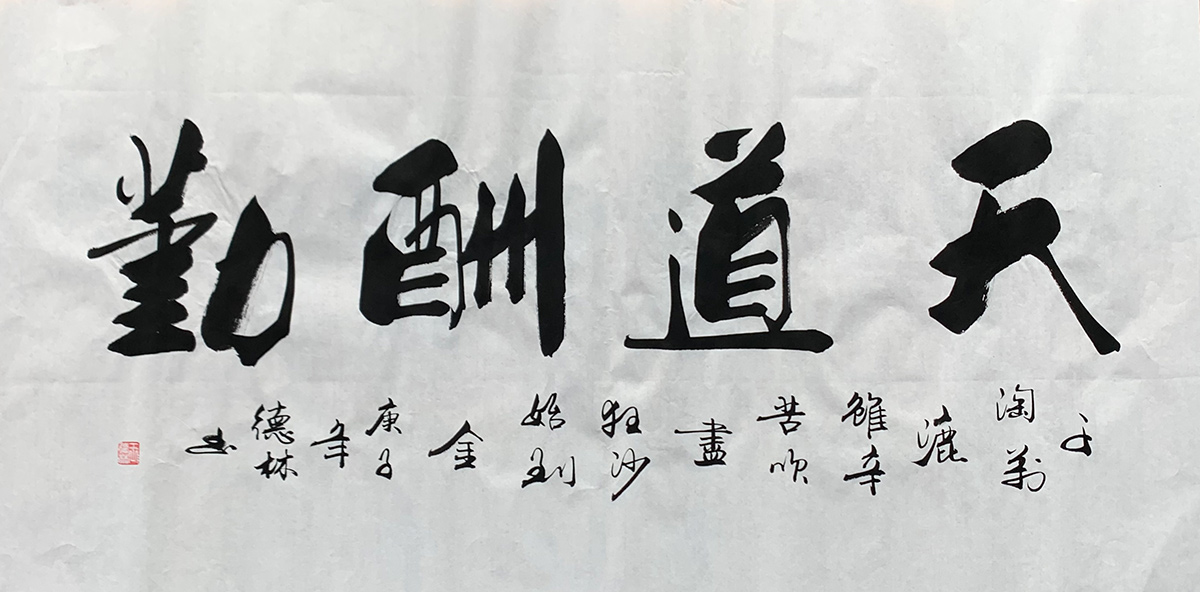 天道酬勤
千淘萬漉雖辛苦吹盡狂沙始到金庚子年德林书